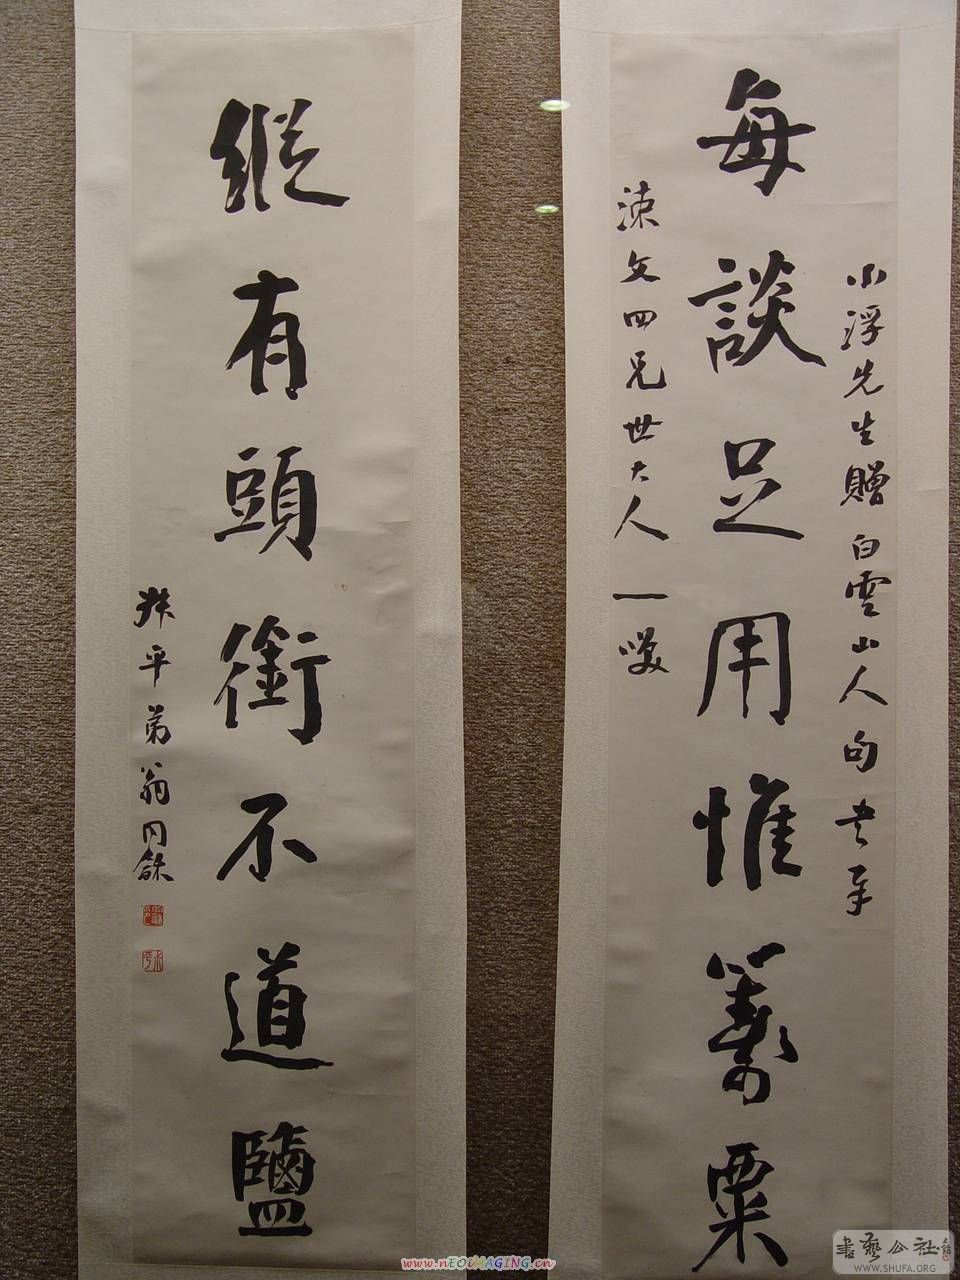 小浮先生贈白雲山人句書奉
每談足用惟籌粟
涑文四兄世大人一噱
縱有頭銜不道鹽
叔平弟翁同龢
書藝公社
WWW.SHUFA.ORG
www.nEOiMAGING.cn